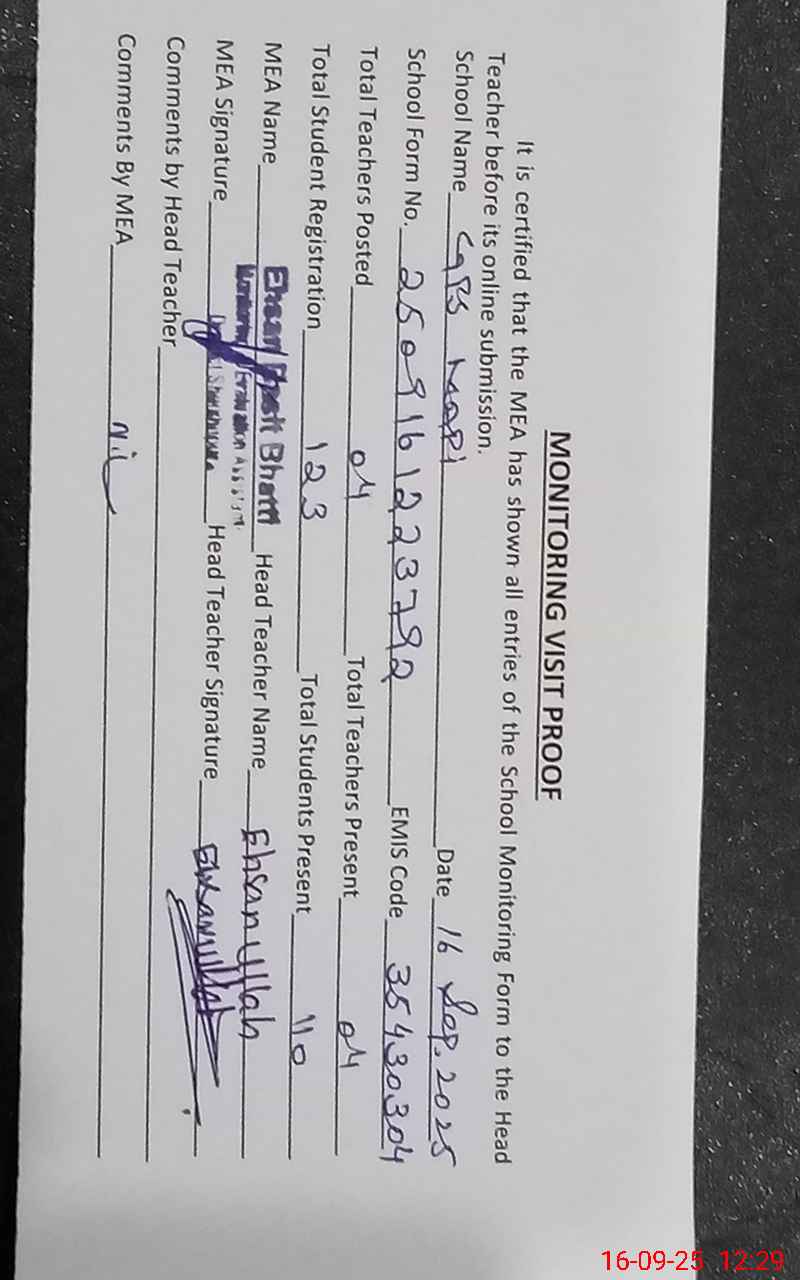 MONITORING VISIT PROOF
It is certified that the MEA has shown all entries of the School Monitoring Form to the Head
Teacher before its online submission.
School Name GPS Date 16 Sep. 2025
School Form No. 250916122 3792 EMIS Code 35430304
Total Teachers Posted 04 Total Teachers Present 04
Total Student Registration 123 Total Students Present 110
MEA Name Ehsan Bhatti Head Teacher Name Ehsanullah
Monitoring Evaluation Assistant
MEA Signature Sheikhupura Head Teacher Signature Ehsanullah
Comments by Head Teacher
Comments By MEA Nil
16-09-25 12:29